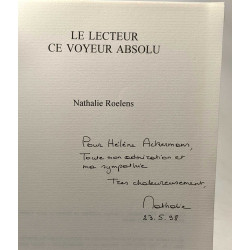 LE LECTEUR
CE VOYEUR ABSOLU
Nathalie Roelens
Pour Hélène Ackermans,
Toute mon admiration et
ma sympathie
Très chaleureusement,
Nathalie
23.5.98